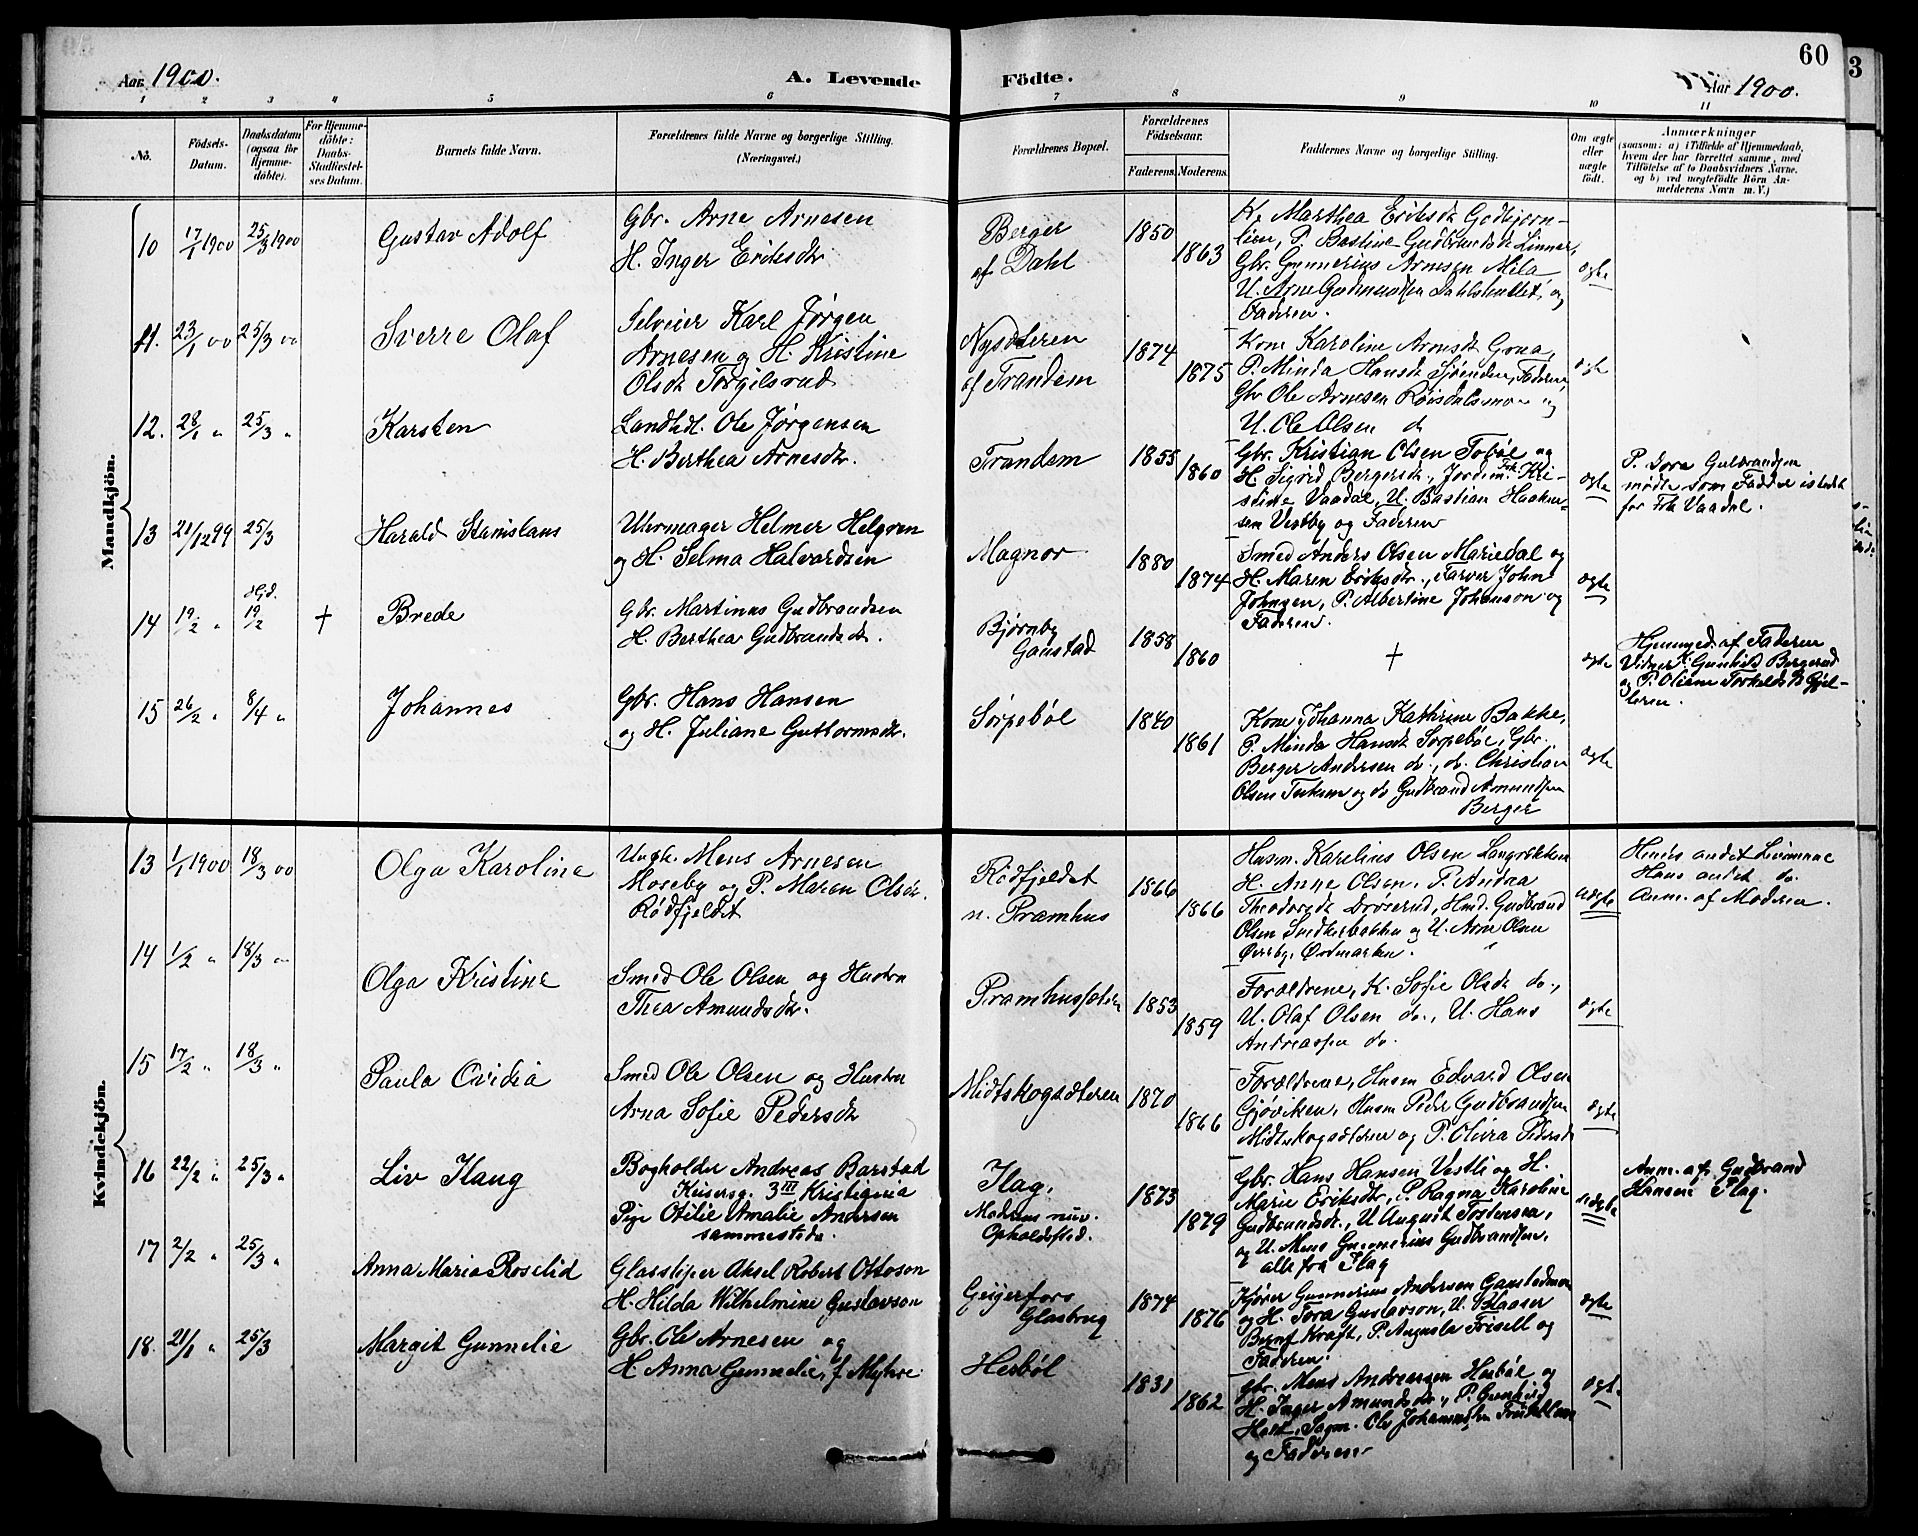 60
3
Aar 1900.
A. Levende
Födte.
Aar 1900.
1 2 3 4 5 6 7 8 9 10 11
No.
Födsels-Datum.
Daabsdatum (ogsaa for Hjemme-döbte).
For Hjemme-döbte: Daabs-Stadfæstel-ses Datum.
Barnets fulde Navn.
Forældrenes fulde Navne og borgerlige Stilling. (Næringsvei.)
Forældrenes Bopæl.
Forældrenes Födselsaar.
Faderens. Moderens.
Faddernes Navne og borgerlige Stilling.
Om ægte eller uægte födt.
Anmærkninger
(saasom: a) i Tilfælde af Hjemmedaab,
hvem der har forrettet samme, med
Tilföielse af to Daabsvidners Navne,
og b) ved uægtefödte Börn An-
melderens Navn m. V.)
Mandkjön.
10 17/1 1900 25/3 1900 Gustav Adolf
Gbr. Arne Arnesen
H. Inger Eriksdtr
Berger
af Dahl
1850
1863
K. Marthea Eriksdt Godbjørn-
lien, P. Bastine Gudbrandsdt Linner,
Gbr. Gunnerius Arnesen Mila
U. Arne Gudmundsen Dahlshullet, og
Faderen.
ægte
11. 23/1 00 25/3 00 Sverre Olaf
Selveier Karl Jørgen
Arnesen og H. Kristine
Olsdt Torgilsrud
Nysæteren
af Trandem
1874
1875
Kone Karoline Arnesdt Grua,
P. Minda Hansdt Sjøenden, Faderen,
Gbr Ole Arnesen Røisdalsmoen og
U. Ole Olsen do
ægte
12. 28/1 " 25/3 " Karsten
Landhdl. Ole Jørgensen
H. Berthea Arnesdtr.
Trandem
1855
1860
Gbr. Kristian Olsen Tobøl og
H. Sigrid Bergersdt., Jordm. Frk. Kri-
stine Vaadal, U. Bastian Haaken-
sen Vestby og Faderen
ægte
P. Dora Gulbrandsen
mødte som Fadder istedet
for Frk Vaadal.
13 21/12 99 25/3 Harald Stanislaus
Uhrmager Helmer Helgren
og H. Selma Halvardsen
Magnor
1880
1874
Smed Anders Olsen Mariedal og
H. Maren Eriksdtr., Farver John
Johnsen, P. Albertine Johanson og
Faderen.
ægte
14 19/2 " Hjd. 19/2 † Brede
Gbr. Martinus Gudbrandsen
H. Berthea Gudbrandsdtr.
Bjørnby
Gaustad
1858
1860
†
ægte
Hjemmed. af Faderen
Vidner K. Gunhild Bergerud
og P. Oliane Torkildsdt Gjel-
leren.
15 26/2 " 8/4 " Johannes
Gbr. Hans Hansen
og H. Juliane Guttormsdt.
Sørpebøl
1840
1861
Kone Johanna Kathrine Bakke,
P. Minda Hansdt Sørpebøl, Gbr.
Berger Andersen do., do. Christian
Olsen og do Gudbrand Amundsen
Berger
ægte
Kvindekjön.
13 1/1 1900 18/3 00 Olga Karoline
Ungk. Mens Arnesen
Moseby og P. Maren Olsdtr.
Rødfjeldet
Rødfjeldet
n. Pramhus
1866
1866
Husm. Karelius Olsen
H. Anne Olsen, P. Andrea
Theodorsdt Drøserud, Hmd. Gudbrand
Olsen Snedkerbakken og U. Arne Olsen
Øiersby, Østmarken.
uægte
Hendes andet Leiermaal
Hans andet do.
Anm. af Moderen.
14 1/2 " 18/3 " Olga Kristine
Smed Ole Olsen og Hustru
Thea Amundsdtr.
Pramhussæteren
1853
1859
Forældrene, K. Sofie Olsdt do.,
U. Olaf Olsen do., U. Hans
Andreassen do.
ægte
15 17/2 " 18/3 " Paula Ovidia
Smed Ole Olsen og Hustru
Arna Sofie Pedersdt
Midtskogsæteren
1870
1866
Forældrene, Husm Edvard Olsen
Gjøviken, Husm Peder Gudbrandsen
Midtskogsæteren og P. Olivia Pedersdt
ægte
16 22/2 " 25/3 " Liv Ilaug
Bogholder Andreas Barstad
Keisersg. 3 III Kristiania
Pige Otilie Amalie Andersen
sammesteds.
Ilag,
Moderens nuv.
Opholdssted.
1873
1879
Gbr. Hans Hansen Vestli og H.
Marie Eriksdtr, P. Ragna Karoline
Gudbrandsdt., U August Torstensen,
og U. Mens Gunnerius Gudbrandsen,
alle fra Ilag
uægte
Anm. af Gudbrand
Hansen Ilag.
17 2/2 " 25/3 " Anna Maria Roselid
Glassliper Aksel Robert Ottoson
H. Hilda Wilhelmine Gustavson
Geijerfors
Glasbrug
1874
1876
Kjører Gunnerius Andersen Gaustadmoen
og H. Tora Gustavson, U. Blaaser
Bernt Kraft, P. Augusta Frisell og
Faderen.
ægte
18. 21/1 " 25/3 Margit Gunnelie
Gbr. Ole Arnesen og
H Anna Gunnelie, f. Myhre
Hesbøl
1831
1862
Gbr. Mens Andreassen Hesbøl og
H. Inger Amundsdtr., P. Gunhild
Sagm. Ole Johannessen
og Faderen
ægte